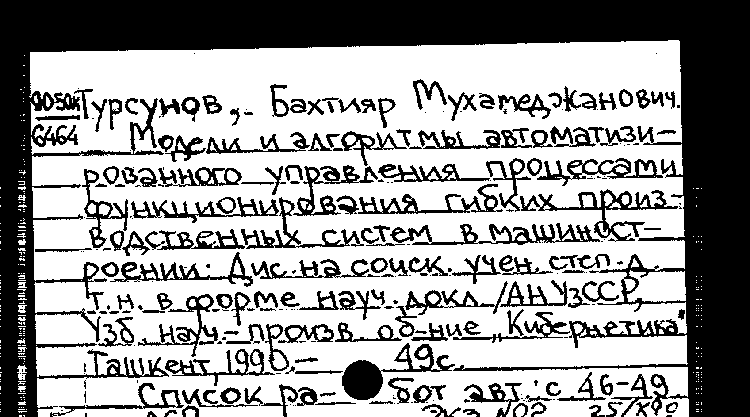 Турсунов, Бахтияр Мухамеджанович.
6464 Модели и алгоритмы автоматизи-
рованного управления процессами
функционирования гибких произ-
водственных систем в машиност-
роении. Дис. на соиск. учен. степ. д.
т.н. в форме науч. докл. /АН УзССР,
Узб. науч.-произв. об-ние „Кибернетика"
Ташкент, 1990.- 49с.
Список ра- бот авт.: с 46-49